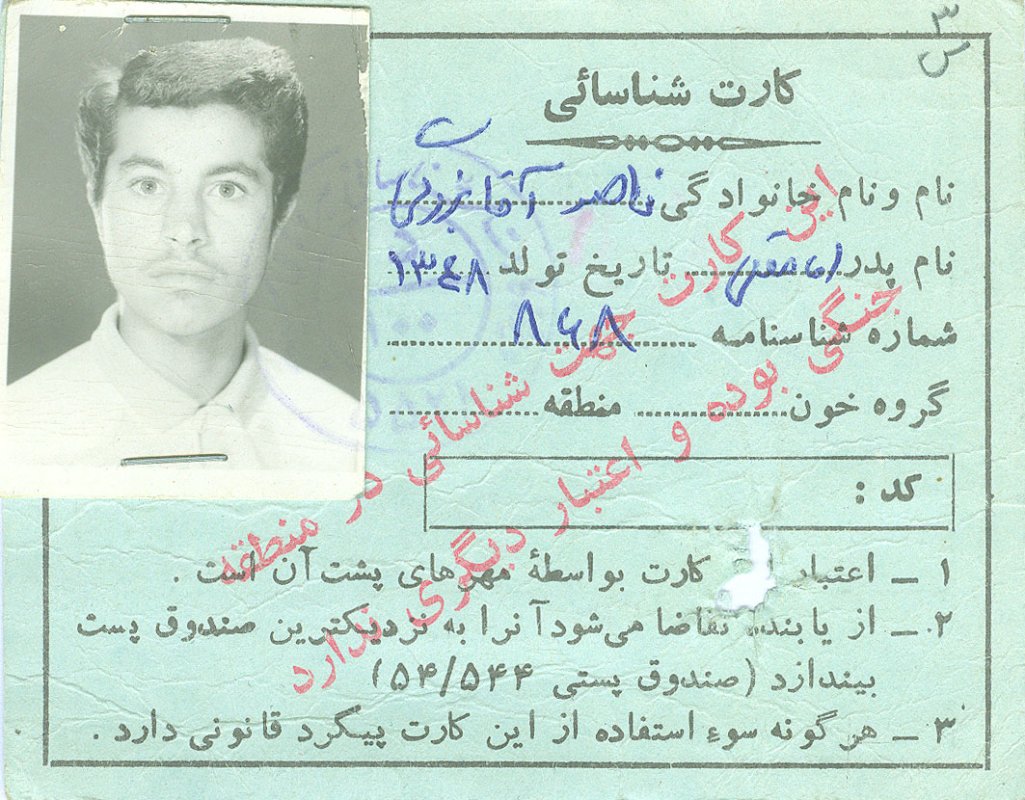 ۳
س
کارت شناسائی
نام و نام خانوادگی ناصر
نام پدر تاریخ تولد ۱۳۴۸
شماره شناسنامه ۸۶۸
گروه خون منطقه
کد :
۱ ـ اعتبار کارت بواسطهٔ مهرهای پشت آن است .
۲ ـ از یابنده تقاضا می‌شود آنرا به نزدیکترین صندوق پست
بیندازد (صندوق پستی ۵۴/۵۴۴)
۳ ـ هرگونه سوءِ استفاده از این کارت پیگرد قانونی دارد .
این کارت جهت شناسائی در منطقه
جنگی بوده و اعتبار دیگری ندارد